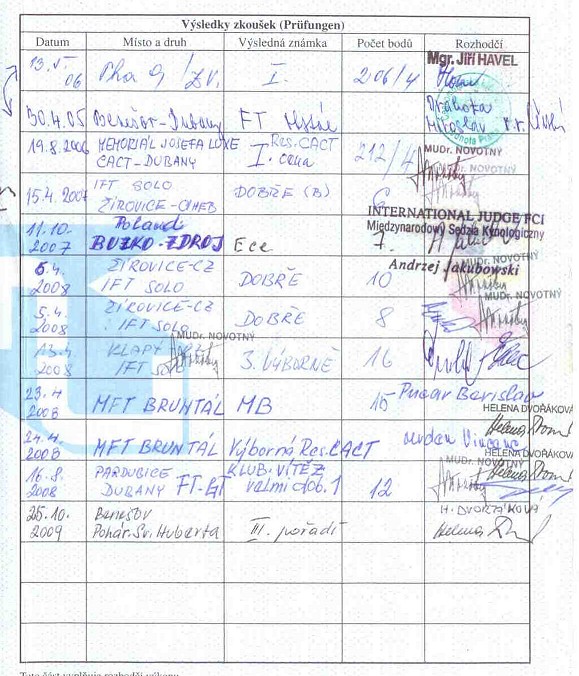 Výsledky zkoušek (Prüfungen)
Datum Místo a druh Výsledná známka Počet bodů Rozhodčí
13. V. 06 Pha 9 / ZV. I. 206/4 Mgr. Jiří HAVEL
30.4.05 Benešov-Dubany FT
19.8.2006 MEMORIÁL JOSEFA LUXE Res.CACT
CACT-DUBANY I. cena 212/4 MUDr. NOVOTNÝ
15.4.2007 IFT SOLO
ŽÍROVICE-CHEB DOBŘE (B) 6
INTERNATIONAL JUDGE FCI
Międzynarodowy Sędzia Kynologiczny
Andrzej Jakubowski
11.10. 2007 Poland
BUZKO-ZDROJ Ece 1.
6.4. 2008 ŽÍROVICE-CZ
IFT SOLO DOBŘE 10 MUDr. NOVOTNÝ
5.4. 2008 ŽÍROVICE-CZ
IFT SOLO DOBŘE 8 MUDr. NOVOTNÝ
MUDr. NOVOTNÝ
13.4. 2008 KLAPÝ
IFT 3. VÝBORNĚ 16
23.4 2008 MFT BRUNTÁL MB 15 Pucar Berislav
HELENA DVOŘÁKOVÁ
24.4. 2008 MFT BRUNTÁL Výborná Res.CACT
HELENA DVOŘÁKOVÁ
16.8. 2008 PARDUBICE KLUB. VÍTĚZ
DUBANY FT-GT velmi dob. 1 12 MUDr. NOVOTNÝ
H. DVOŘÁKOVÁ
25.10. 2009 Benešov
Pohár Sv. Huberta III. pořadí